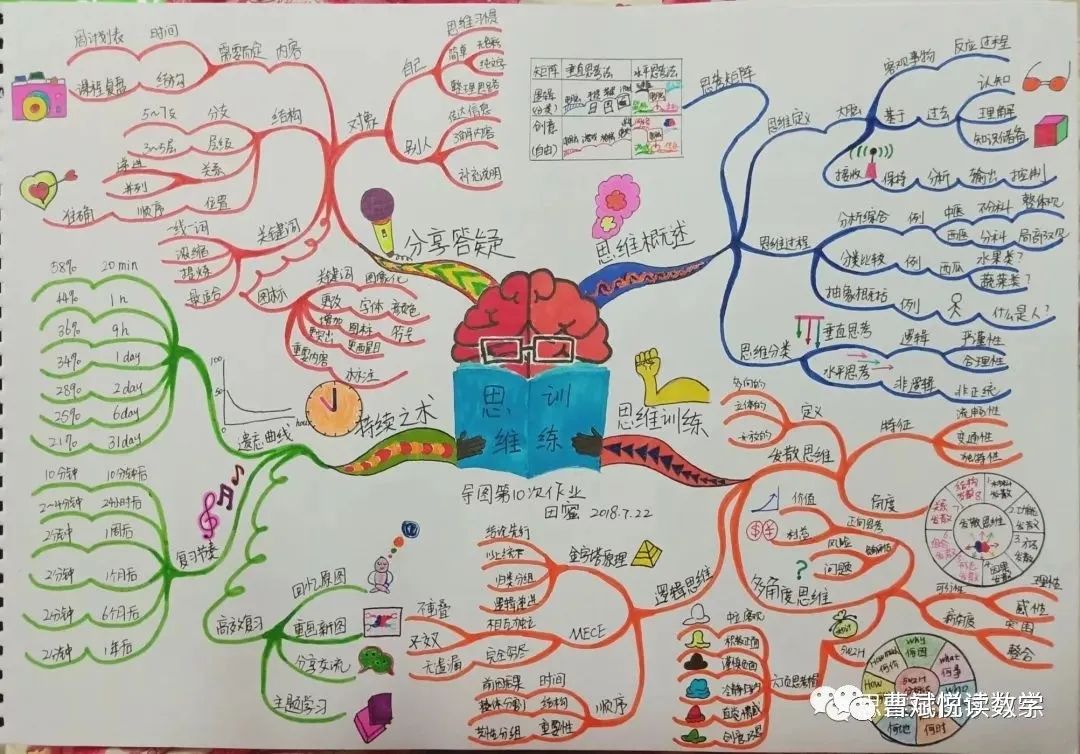 思维训练
导图第10次作业
田蜜 2018.7.22
思维概述
思维矩阵
矩阵
垂直思考法
水平思考法
逻辑
(分类)
创意
(自由)
思维定义
大脑
客观事物
反应过程
基于
过去
认知
理解
知识储备
接收
保持
分析
输出
控制
思维过程
分析综合
例
中医
不分科
整体观
西医
分科
局部观
分类比较
例
西瓜
水果类?
蔬菜类?
抽象概括
例
什么是人?
思维分类
垂直思考
逻辑
严谨性
合理性
水平思考
非逻辑
非正统
思维训练
发散思维
定义
多向的
立体的
开放的
特征
流畅性
变通性
独特性
角度
发散思维
结构发散
功能发散
方法发散
因果发散
组合发散
多角度思维
价值
利益
正向思考
风险
问题
可行性
理性
感性
新角度
突围
整合
5W2H
5W2H
Why
何因
What
何事
Who
何时
何地
How
How much
何价
六顶思考帽
中立客观
积极正面
谨慎负面
冷静归纳
直觉情感
创意巧思
逻辑思维
金字塔原理
结论先行
以上统下
归类分组
逻辑递进
MECE
相互独立
不重叠
不交叉
完全穷尽
无遗漏
顺序
时间
前因后果
结构
整体分割
重要性
类性分组
持续之术
遗忘曲线
100
50
hour
58%
20 min
44%
1 h
36%
9 h
34%
1 day
28%
2 day
25%
6 day
21%
31 day
复习节奏
10分钟
10分钟后
2~4分钟
24小时后
2分钟
1周后
2分钟
1个月后
2分钟
6个月后
2分钟
1年后
高效复习
回忆原图
重画新图
分享交流
主题学习
分享答疑
对象
自己
思维习惯
简单
无色彩
纯文字
整理思路
别人
传达信息
了解内容
补充说明
需要而定
内容
时间
周计划表
结构
课程复盘
结构
分支
5~7支
层级
3~5层
关系
递进
并列
位置
顺序
准确
关键词
一线一词
浓缩
提炼
最适合
图标
关键词
图像化
更改
字体
颜色
增加
图标
符号
突出
重要内容
更醒目
标注
思曹斌悦读数学